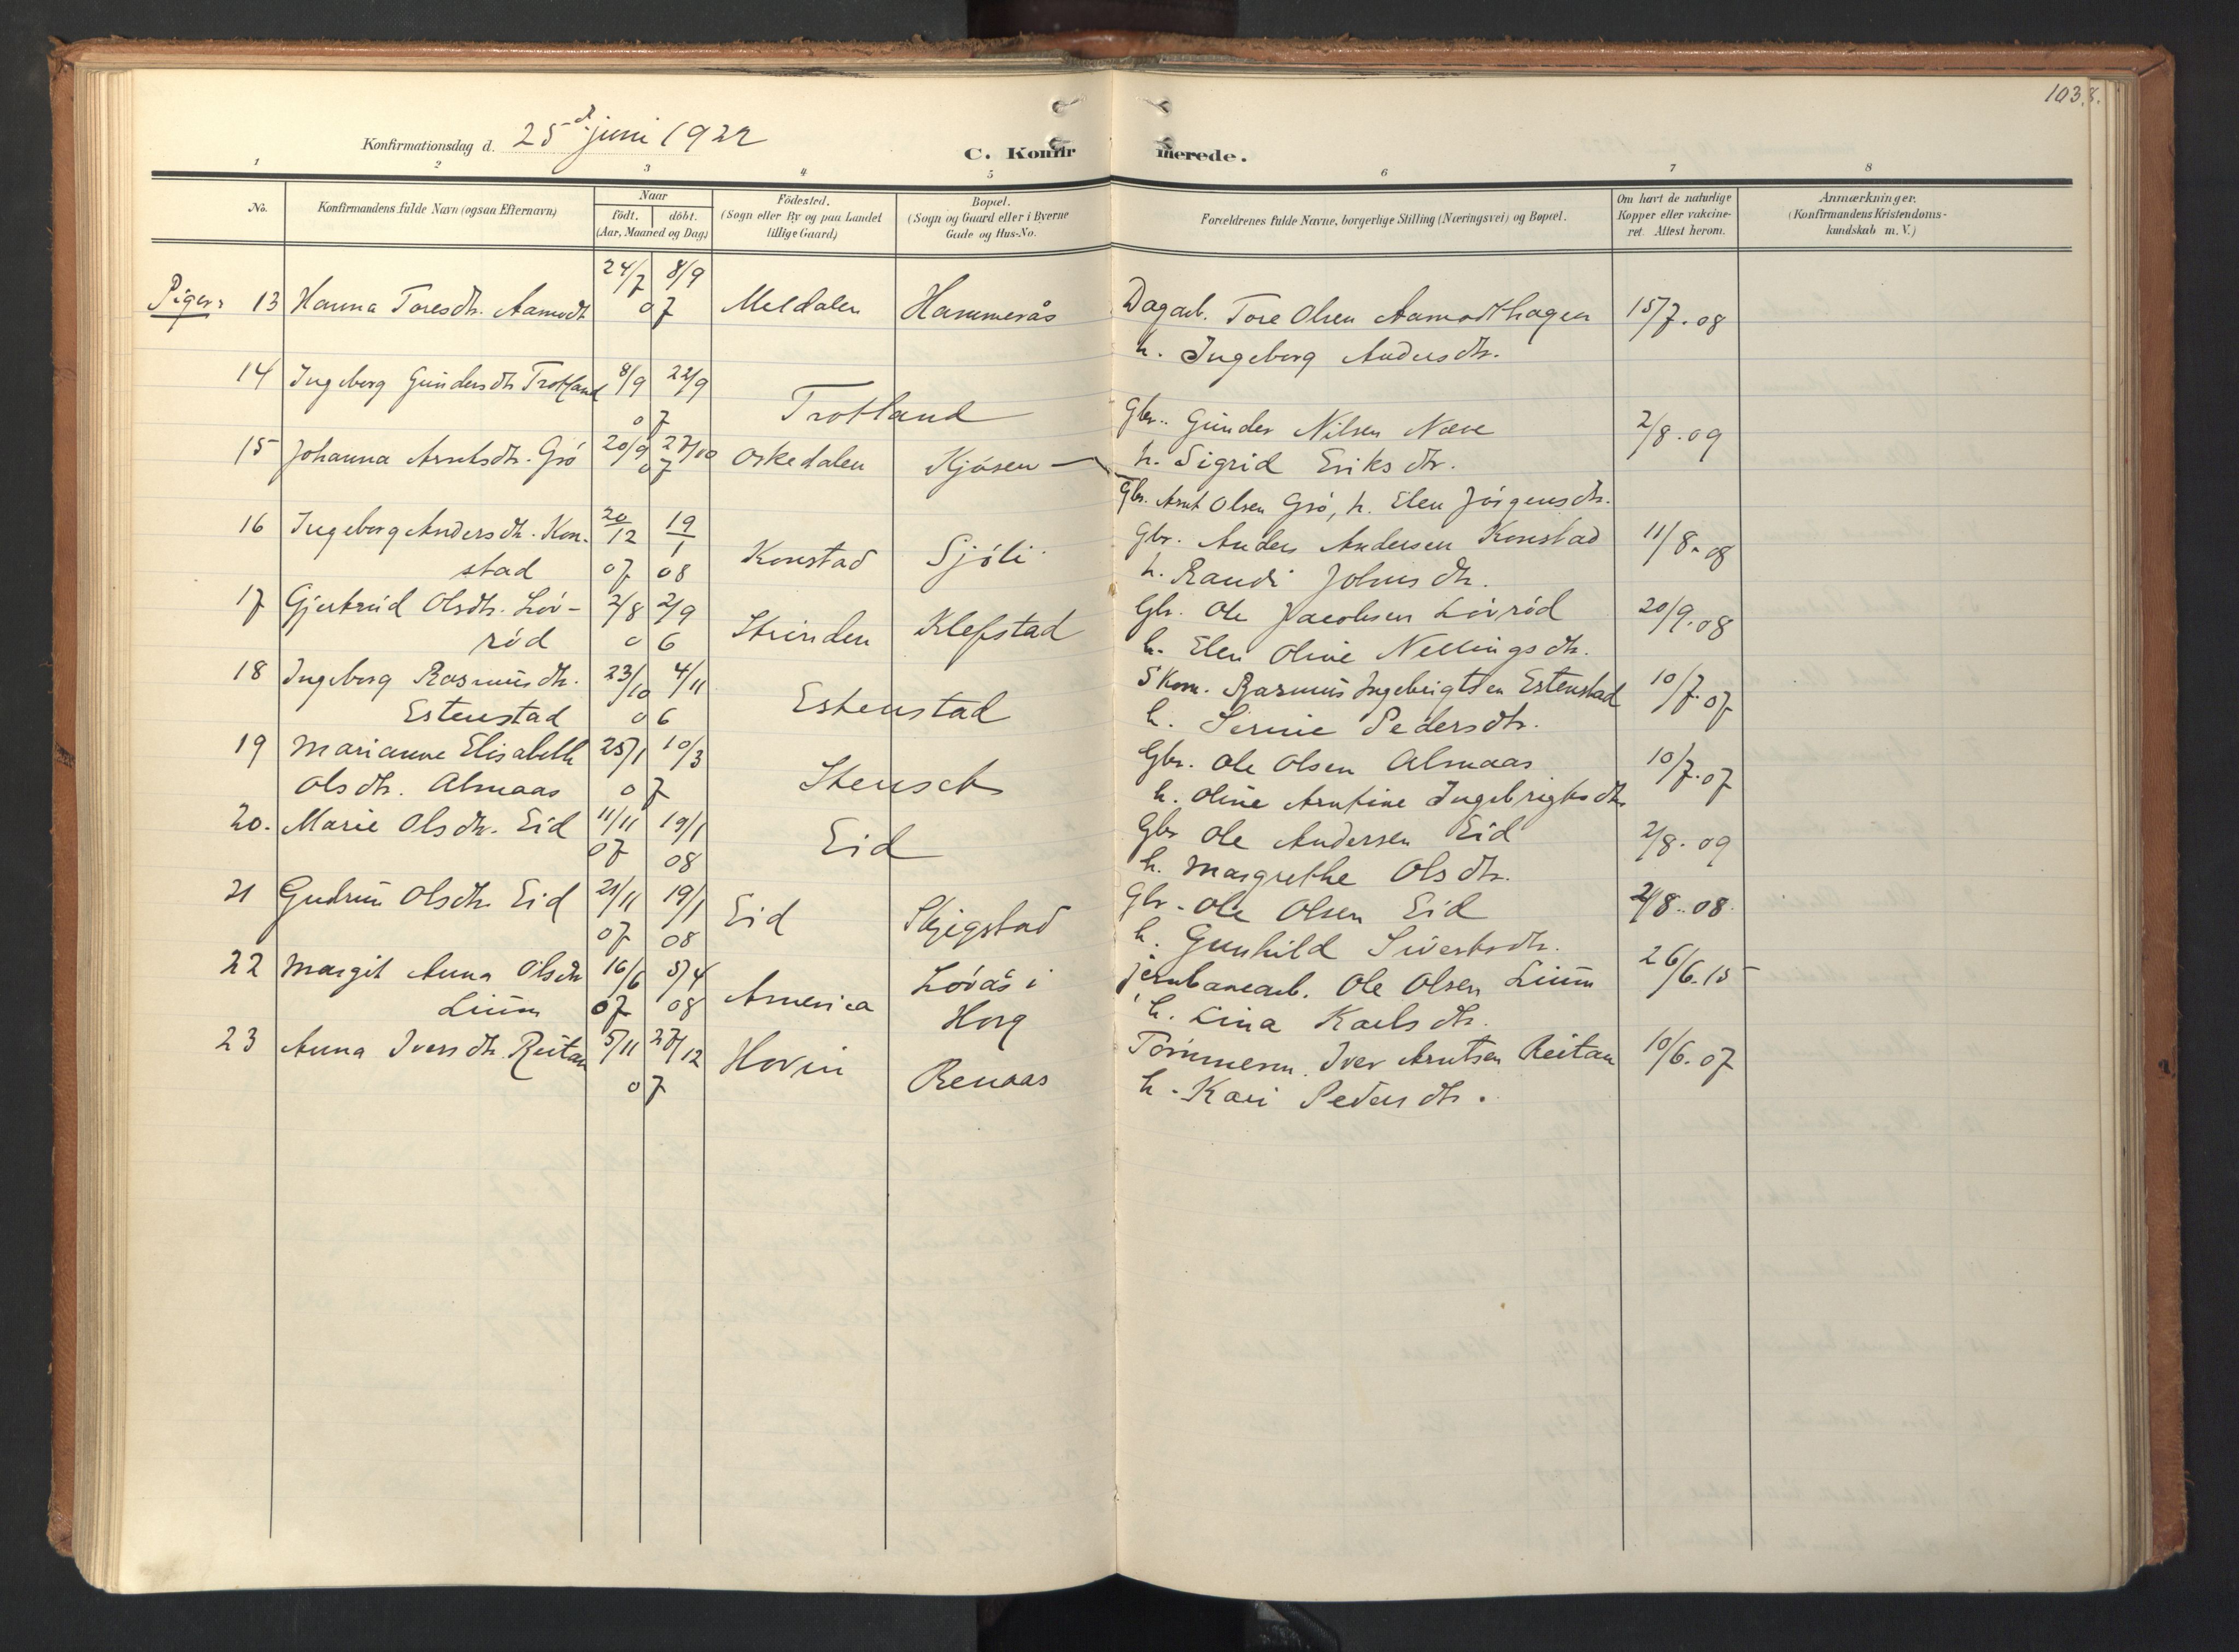 103.
Konfirmationsdag d. 25d juni 1922
C. Konfir merede.
1 2 3 4 5 6 7 8
No. Konfirmandens fulde Navn (ogsaa Efternavn) Naar født. døbt. (Aar, Maaned og Dag) Fødested. (Sogn eller By og paa Landet tillige Gaard) Bopæl. (Sogn og Gaard eller i Byerne Gade og Hus-No. Forældrenes fulde Navne, borgerlige Stilling (Næringsvei) og Bopæl. Om havt de naturlige Kopper eller vakcineret. Attest herom. Anmærkninger. (Konfirmandens Kristendomskundskab m. V.)
Piger: 13 Hanna Toresdtr. Aamodt 24/7 8/9 07 Meldalen Hammerås Dagarb. Tore Olsen Aamodthagen 15/7.08
h. Ingeborg Andersdtr.
14 Ingeborg Gündersdtr Trotland 8/9 22/9 07 Trotland Gbr. Günder Nilsen Næve 2/8.09
h. Sigrid Eriksdtr.
15 Johanna Arntsdtr. Grö 20/9 27/10 07 Orkedalen Kjösen —
Gbr. Arnt Olsen Grö, h. Elen Jörgensdtr.
16 Ingeborg Andersdtr. Kon- 20/12 19/1 Gbr. Anders Andersen Konstad 11/8.08
stad 07 08 Konstad Sjöli h. Randi Johnsdtr.
17 Gjertrüd Olsdtr. Löv- 2/8 2/9 Gbr. Ole Jacobsen Lövröd 20/9.08
röd 06 Strinden Klefstad h. Elen Oline Nellingsdtr.
18 Ingeborg Rasmüsdtr. 23/10 4/11 Skom. Rasmüs Ingebrigtsen Estenstad 10/7.07
Estenstad 06 Estenstad h. Sernie Pedersdtr.
19 Marianne Elisabeth 25/1 10/3 Gbr. Ole Olsen Almaas 10/7.07
Olsdtr. Almaas 07 h. Oline Arntine Ingebrigtsdtr
20. Marie Olsdtr. Eid 11/11 19/1 Eid Gbr Ole Andersen Eid 2/8.09
07 08 h. Margrethe Olsdtr.
21 Gudrün Olsdtr Eid 21/11 19/1 Eid Skjegstad Gbr. Ole Olsen Eid 24/8.08.
07 08 h. Gunhild Sivertsdtr.
22 Margit Anna Olsdtr 16/6 5/4 America Lövås i jernbanearb. Ole Olsen Liüm 26/6.15
Liüm 07 08 Horg h. Lina Karlsdtr.
23 Anna Iversdtr. Reitan 5/11 27/12 Hovin Renaas Tömmerm. Iver Arntsen Reitan 10/6.07
07 h. Kari Pedersdtr.